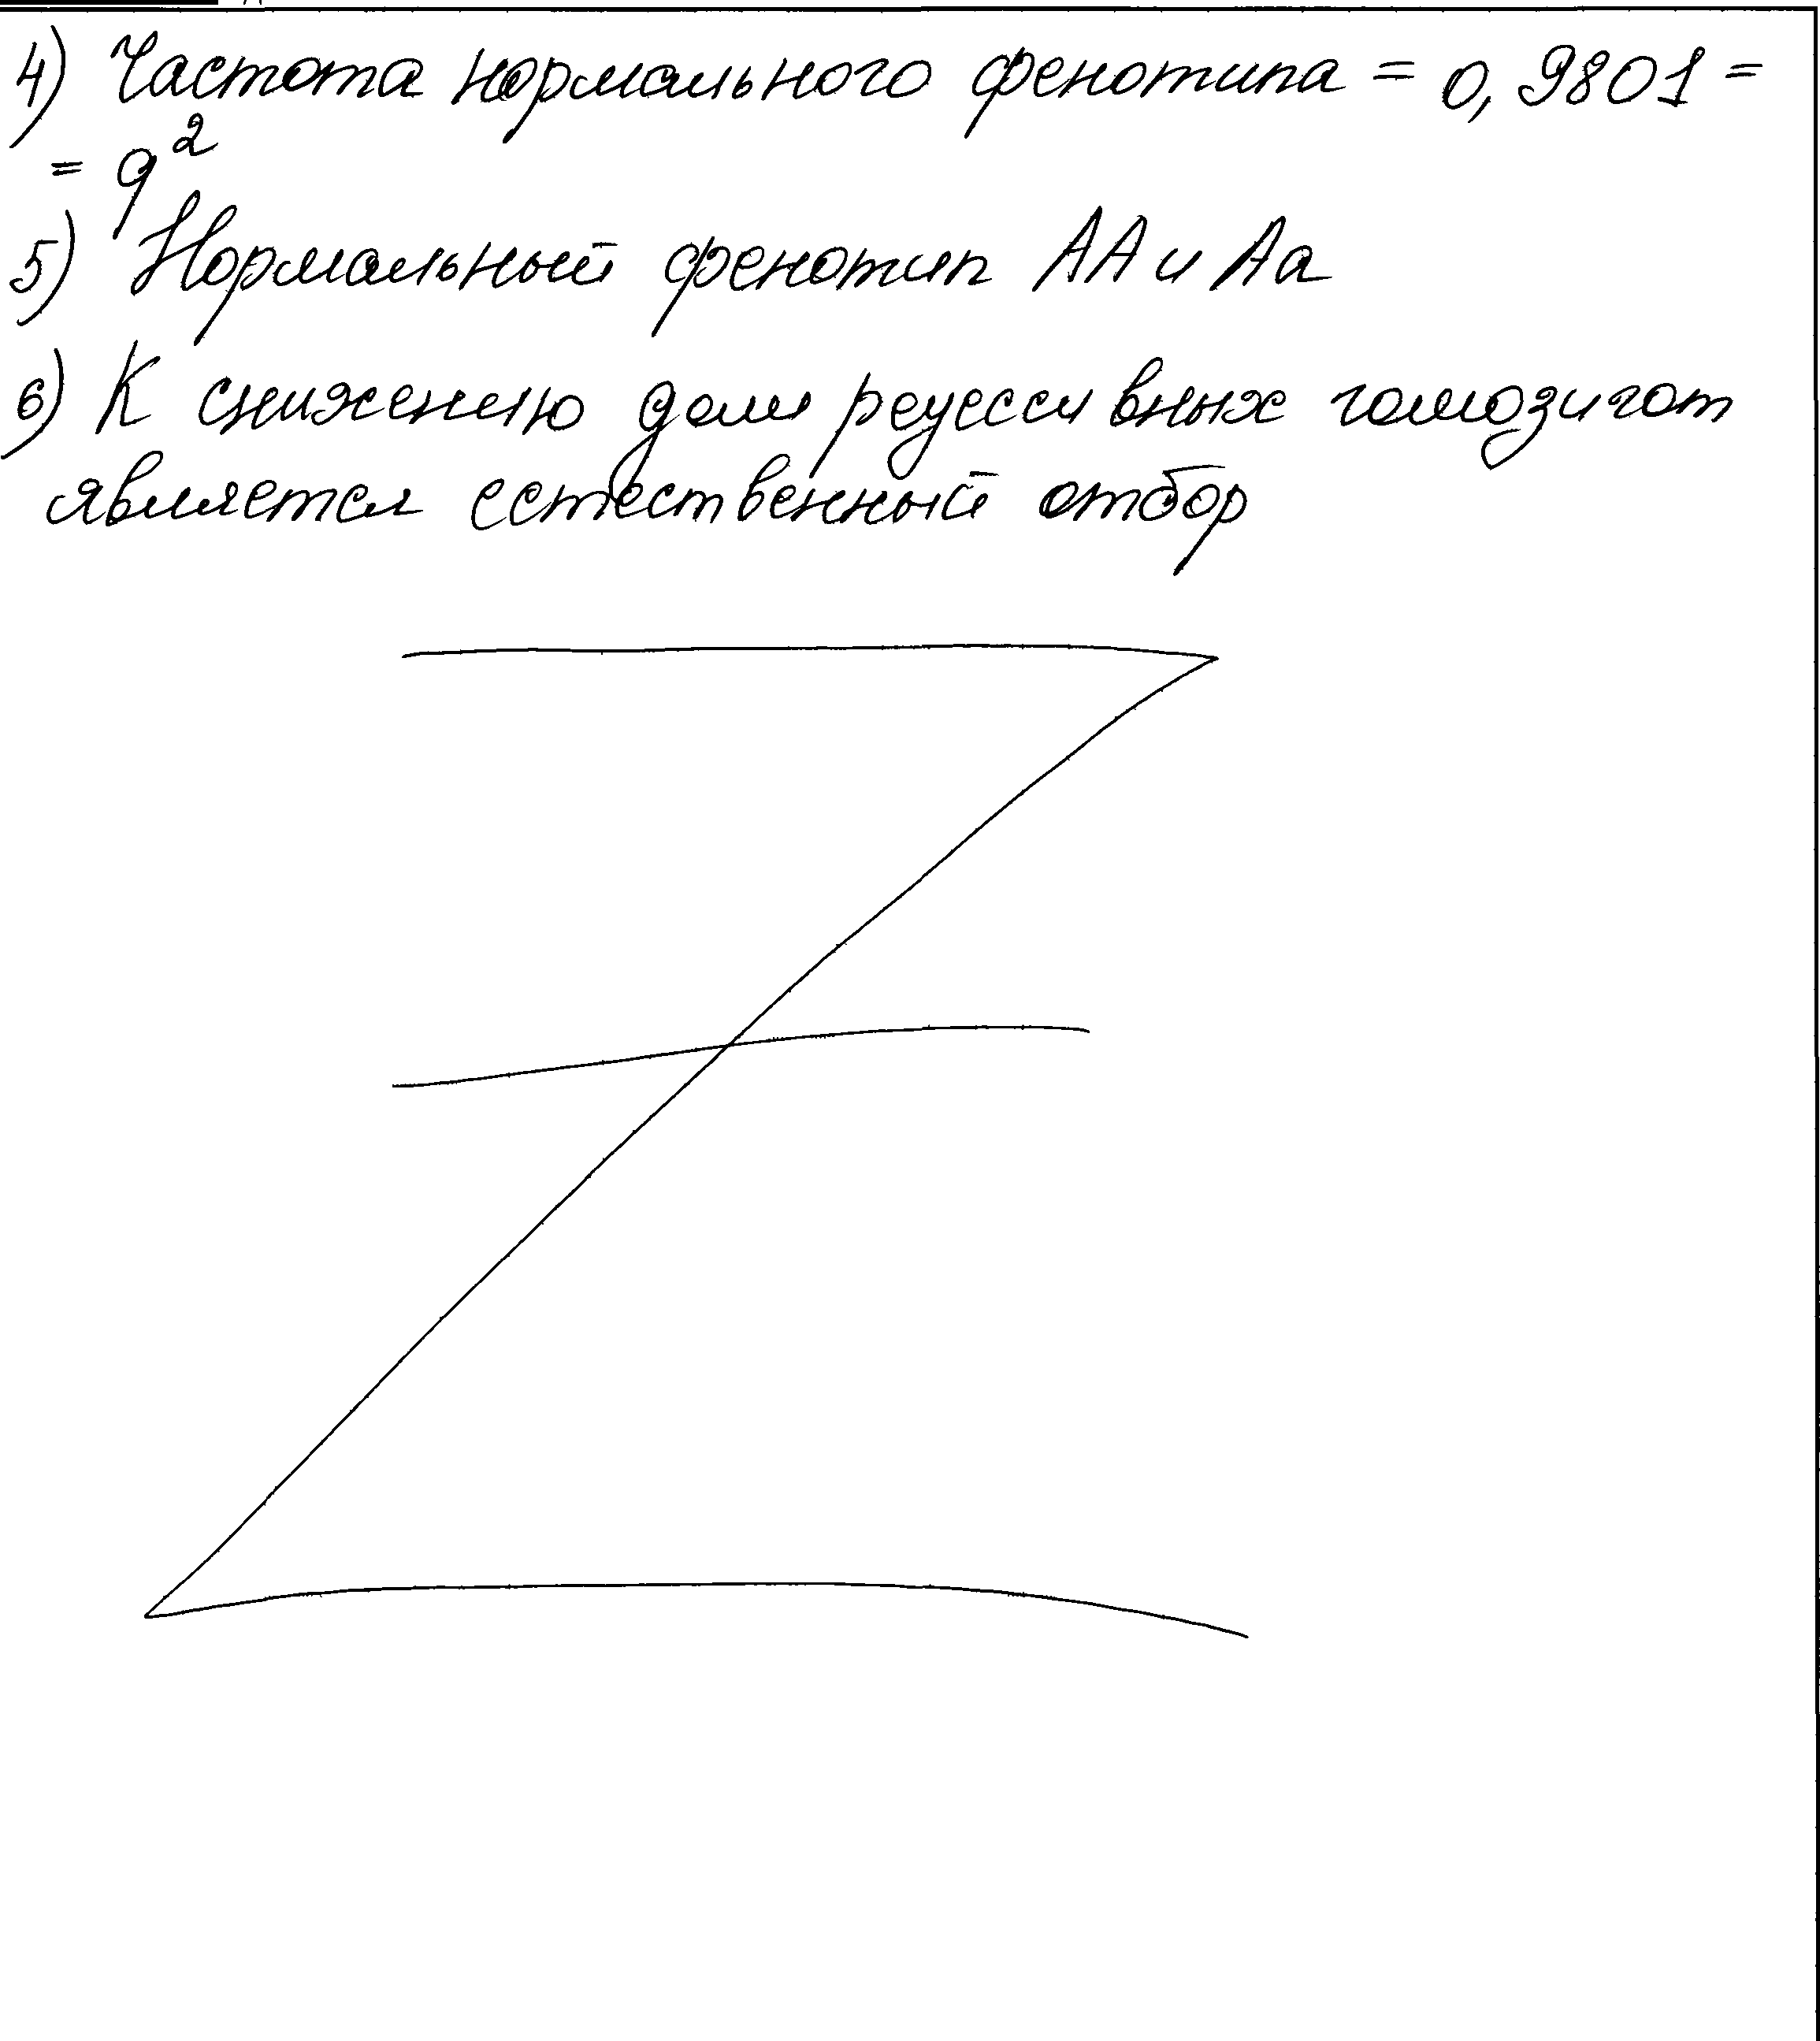 4) Частота нормального фенотипа = 0,9801 =
= q²
5) Нормальный фенотип АА и Аа
6) К снижению доли рецессивных гомозигот
является естественный отбор